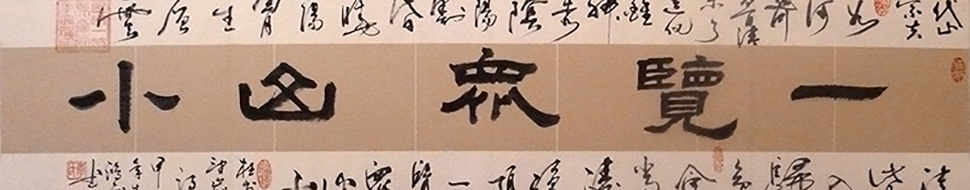 岱宗夫如何齊魯青未了造化鍾神秀陰陽割昏曉盪胸生層雲
一覽衆山小
決眥入歸鳥會當凌絕頂一覽衆山小